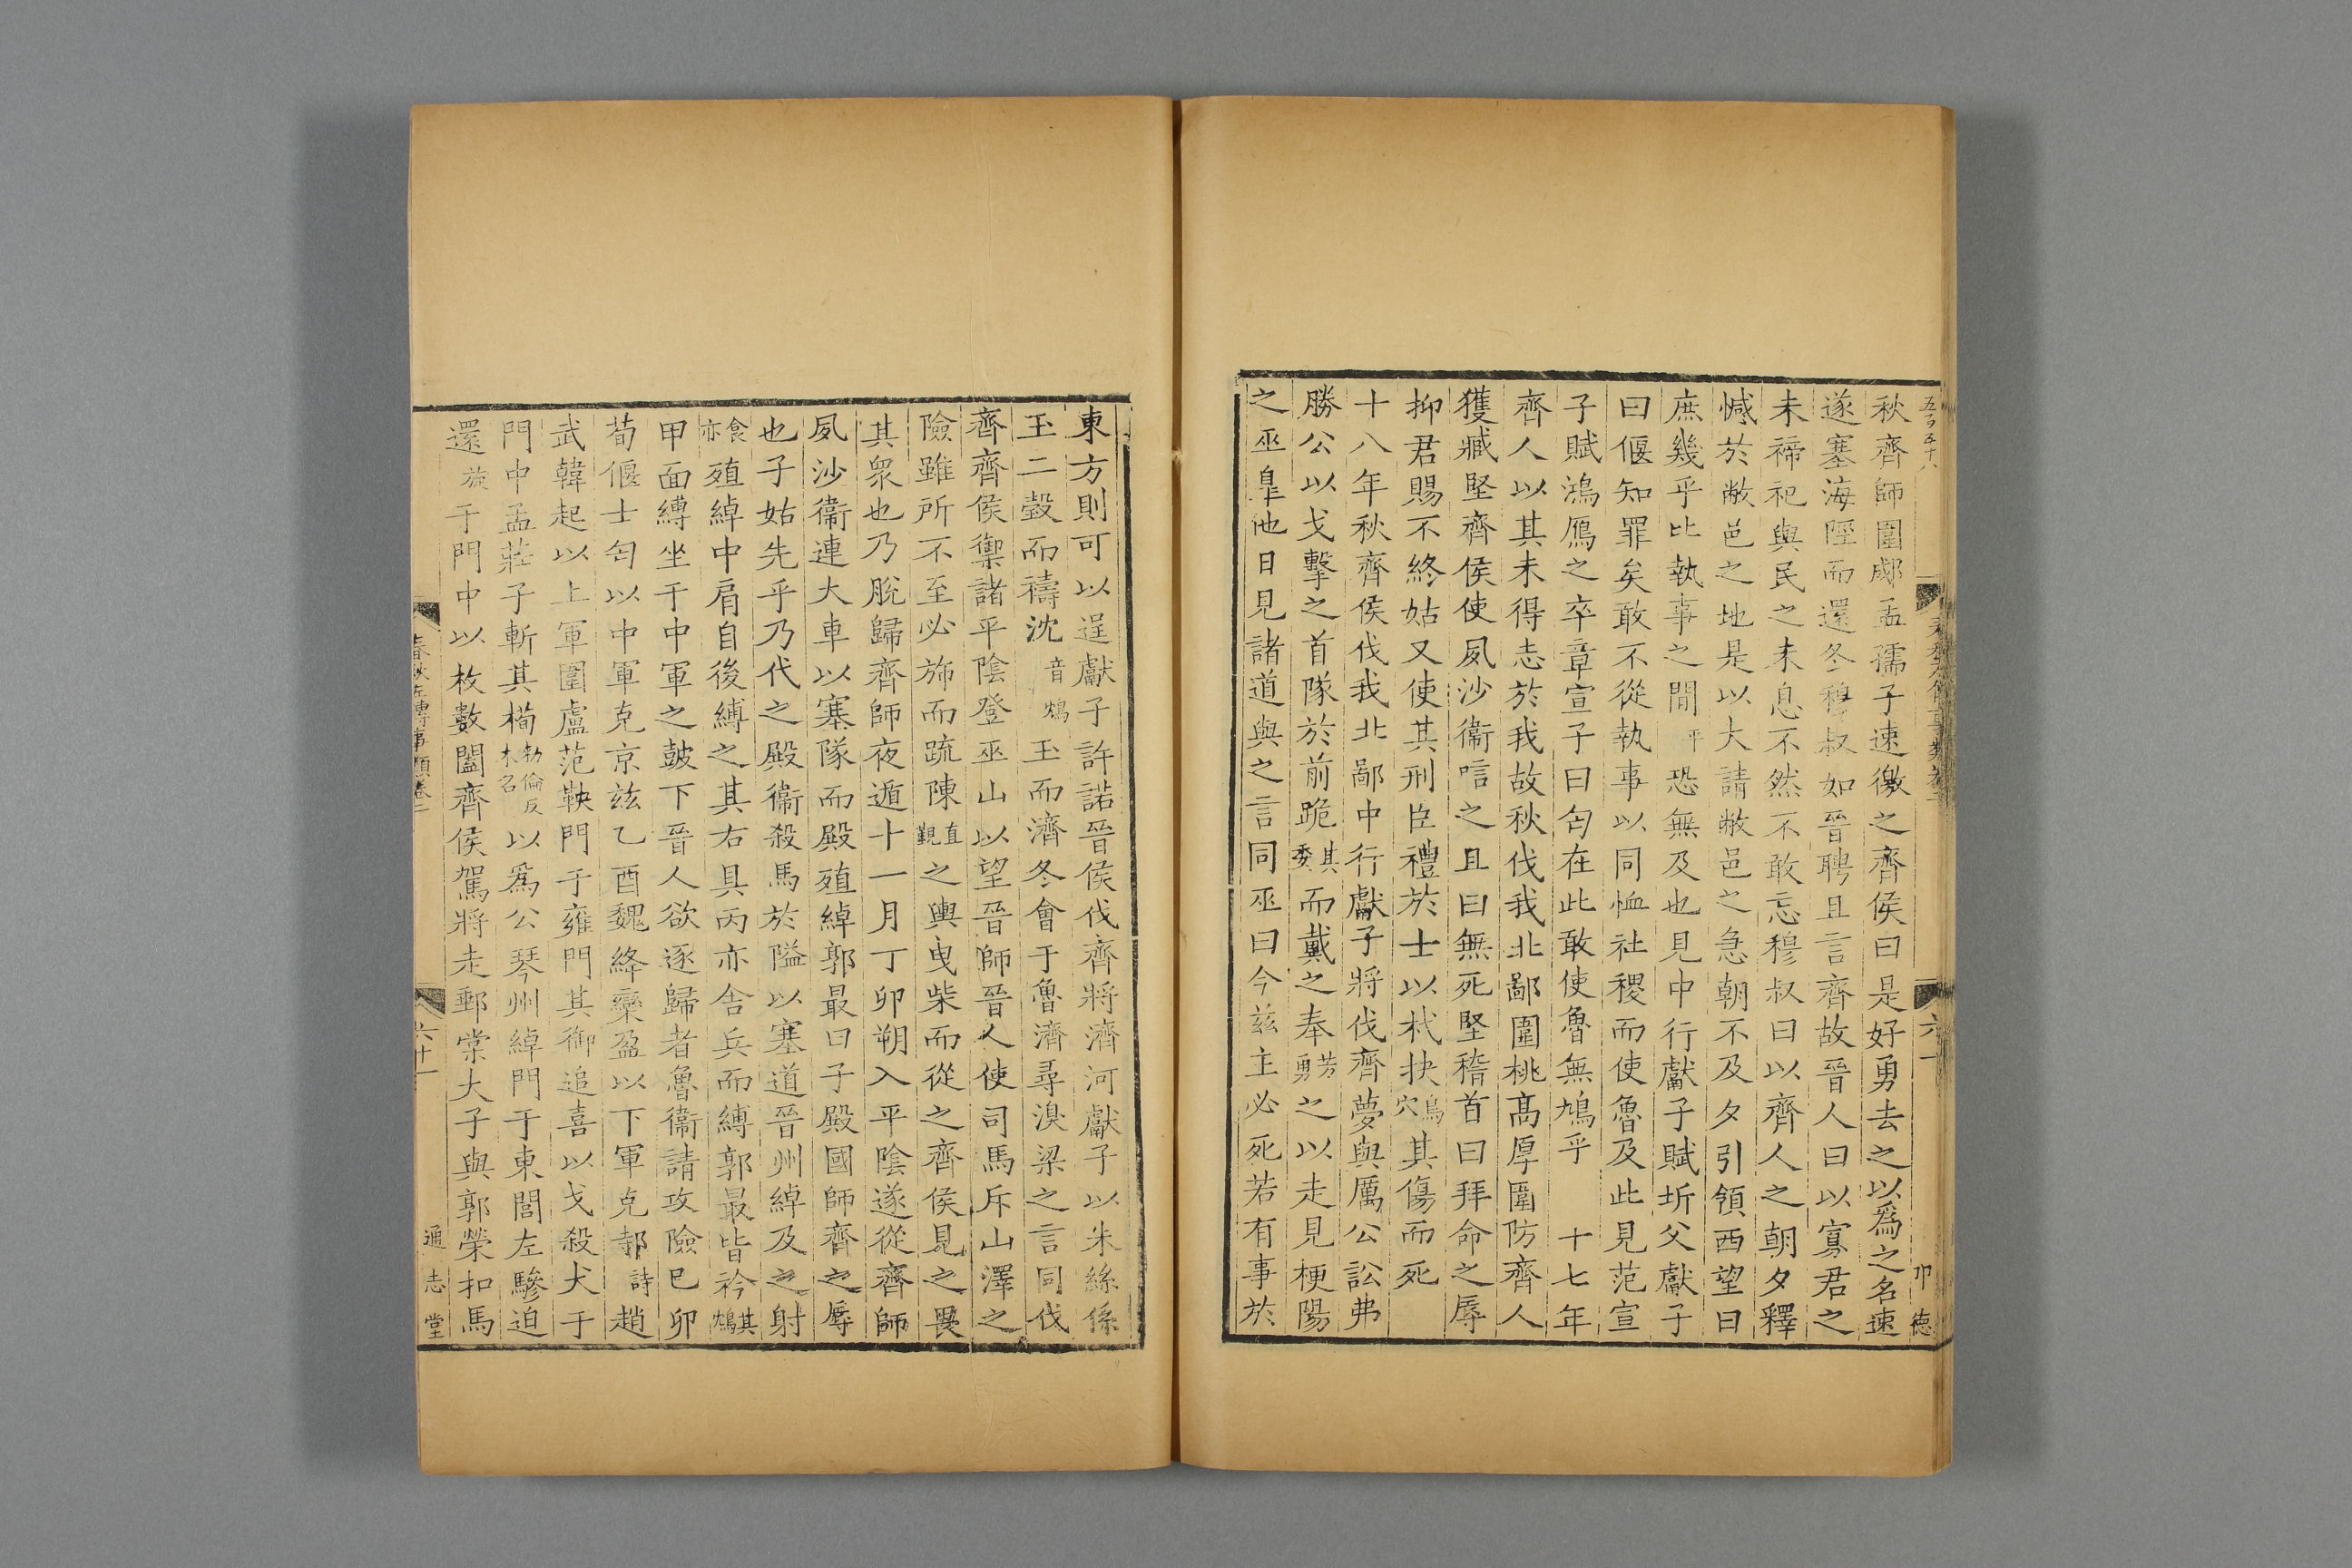 五百五十八
六十一
卬德
秋齊師圍郕孟孺子速徼之齊侯曰是好勇去之以爲之名速
遂塞海陘而還冬穆叔如晉聘且言齊故晉人曰以寡君之
未禘祀與民之未息不然不敢忘穆叔曰以齊人之朝夕釋
憾於敝邑之地是以大請敝邑之急朝不及夕引領西望曰
庶幾乎比執事之閒平恐無及也見中行獻子賦圻父獻子
曰偃知罪矣敢不從執事以同恤社稷而使魯及此見范宣
子賦鴻鴈之卒章宣子曰匄在此敢使魯無鳩乎 十七年
齊人以其未得志於我故秋伐我北鄙圍桃高厚圍防齊人
獲臧堅齊侯使夙沙衞唁之且曰無死堅稽首曰拜命之辱
抑君賜不終姑又使其刑臣禮於士以杙抉烏穴其傷而死
十八年秋齊侯伐我北鄙中行獻子將伐齊夢與厲公訟弗
勝公以戈擊之首隊於前跪其委而戴之奉芳勇之以走見梗陽
之巫皐他日見諸道與之言同巫曰今茲主必死若有事於
東方則可以逞獻子許諾晉侯伐齊將濟河獻子以朱絲係
玉二瑴而禱沈音鴆玉而濟冬會于魯濟尋湨梁之言同伐
齊齊侯禦諸平陰登巫山以望晉師晉人使司馬斥山澤之
險雖所不至必斾而疏陳直覲之輿曳柴而從之齊侯見之畏
其衆也乃脫歸齊師夜遁十一月丁卯朔入平陰遂從齊師
夙沙衞連大車以塞隊而殿殖綽郭最曰子殿國師齊之辱
也子姑先乎乃代之殿衞殺馬於隘以塞道晉州綽及之射
食亦殖綽中肩自後縛之其右具丙亦舍兵而縛郭最皆衿其鴆
甲面縛坐于中軍之鼓下晉人欲逐歸者魯衞請攻險已卯
荀偃士匄以中軍克京茲乙酉魏絳欒盈以下軍克邿詩趙
武韓起以上軍圍盧范鞅門于雍門其御追喜以戈殺犬于
門中孟莊子斬其橁勑倫反木名以爲公琴州綽門于東閭左驂迫
還旋于門中以枚數闔齊侯駕將走郵棠大子與郭榮扣馬
春秋左傳事類卷二
六十一
通志堂